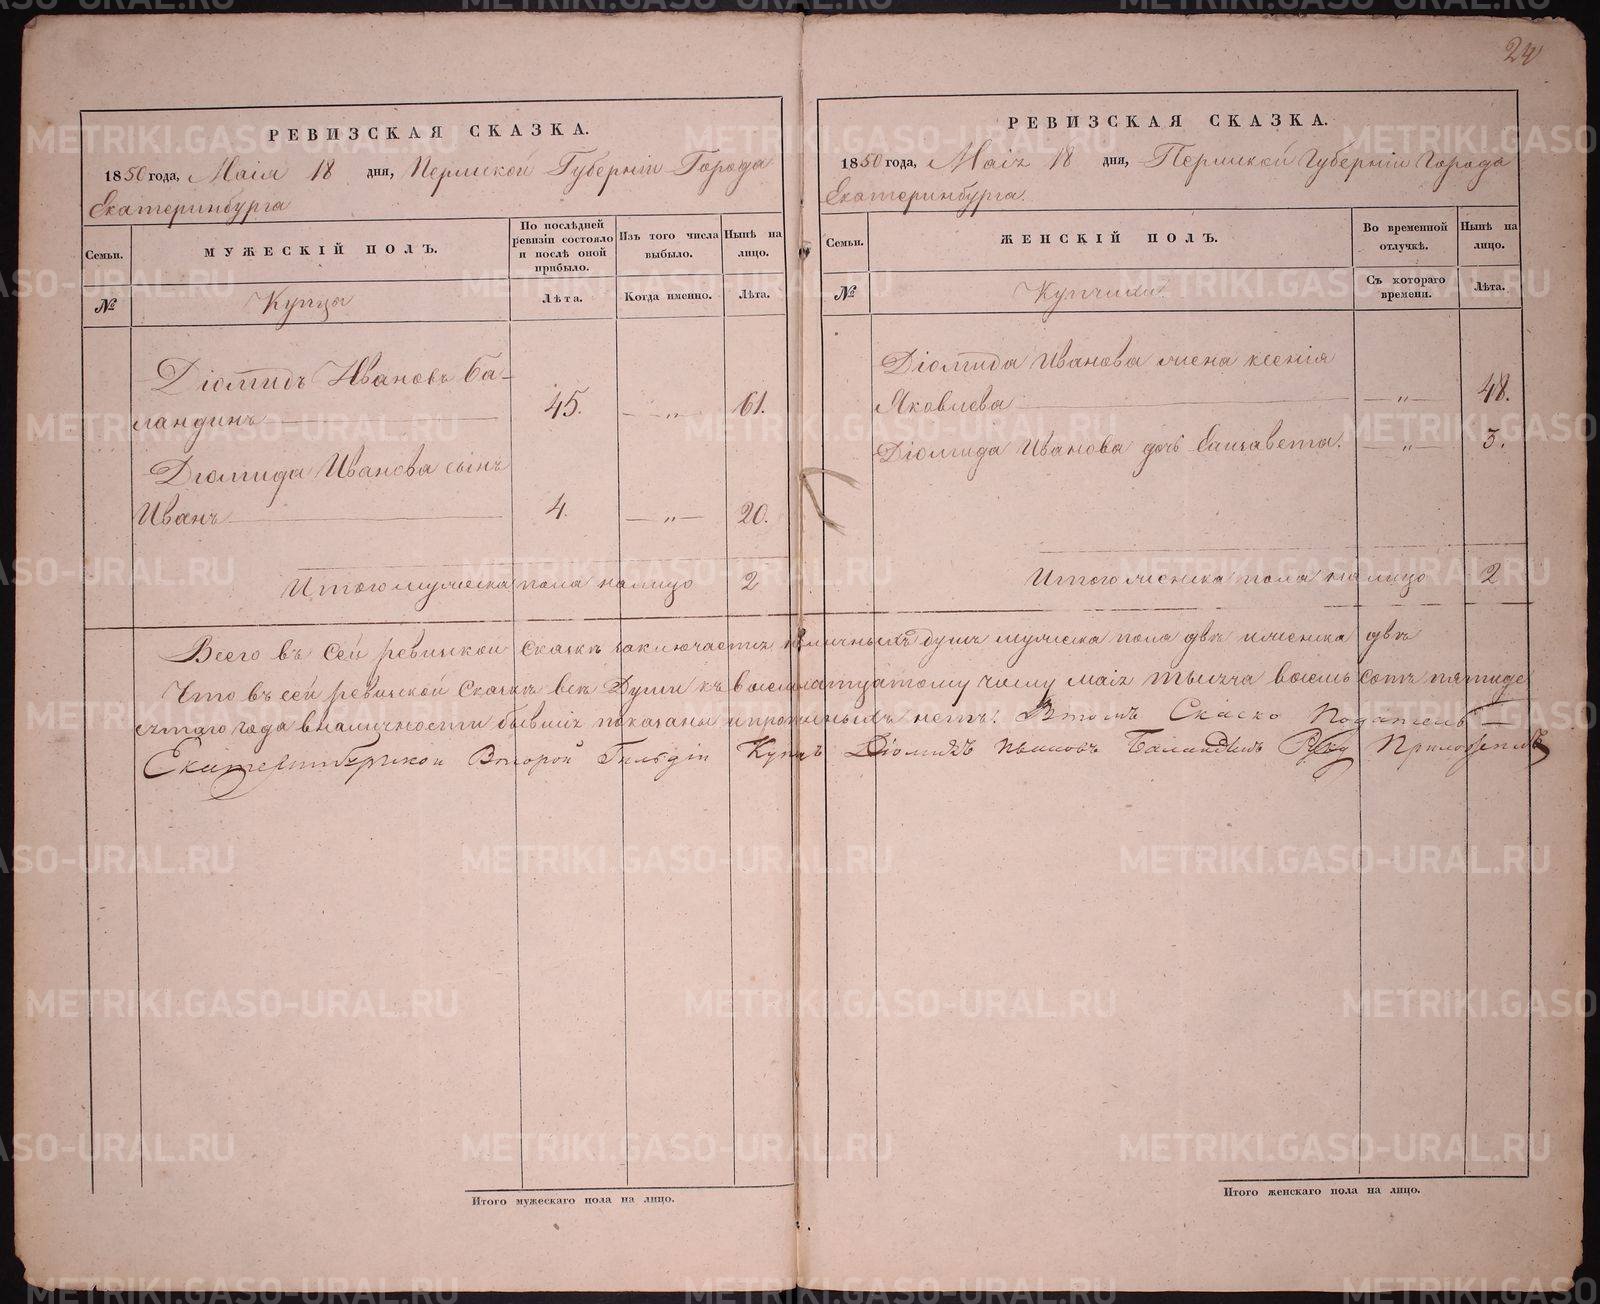 24
РЕВИЗСКАЯ СКАЗКА.
1850 года, Маія 18 дня, Пермской Губерніи Города
Екатеринбурга
Семьи.
МУЖЕСКІЙ ПОЛЪ.
По послѣдней
ревизіи состояло
и послѣ оной
прибыло.
Изъ того числа
выбыло.
Нынѣ на
лицо.
№
Купцы
Лѣта.
Когда именно.
Лѣта.
Діомидъ Ивановъ Ба-
ландинъ 45. — „ — 61.
Діомида Иванова сынъ
Иванъ 4. — „ — 20.
Итого мужеска пола налицо 2
РЕВИЗСКАЯ СКАЗКА.
1850 года, Маія 18 дня, Пермской Губерніи Города
Екатеринбурга.
Семьи.
ЖЕНСКІЙ ПОЛЪ.
Во временной
отлучкѣ.
Нынѣ на
лицо.
№
Купчихи.
Съ котораго
времени.
Лѣта.
Діомида Иванова жена Ксенія
Яковлева — „ — 48.
Діомида Иванова дочь Елизавета. — „ — 3.
Итого женска пола налицо 2
Всего въ сей ревизской сказкѣ заключается наличныхъ душъ мужеска пола двѣ и женска двѣ
Что въ сей ревизской сказкѣ всѣ души къ восемнатцатому числу маія тысяча восемь сотъ пятиде
сятаго года в наличности бывшіе показаны и прописныхъ нетъ: Втомъ Скаско Податель —
Екатеринбургской Второй Гильдіи Купец Діомидъ Ивановъ Баландинъ Руку Приложилъ
Итого мужескаго пола на лицо.
Итого женскаго пола на лицо.
METRIKI.GASO-URAL.RU